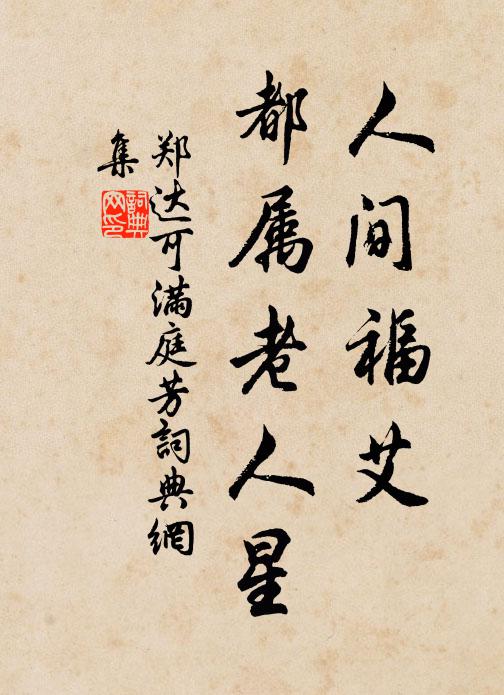 人间福艾
都属老人星
郑达可满庭芳詞典網
集
詞典
网印